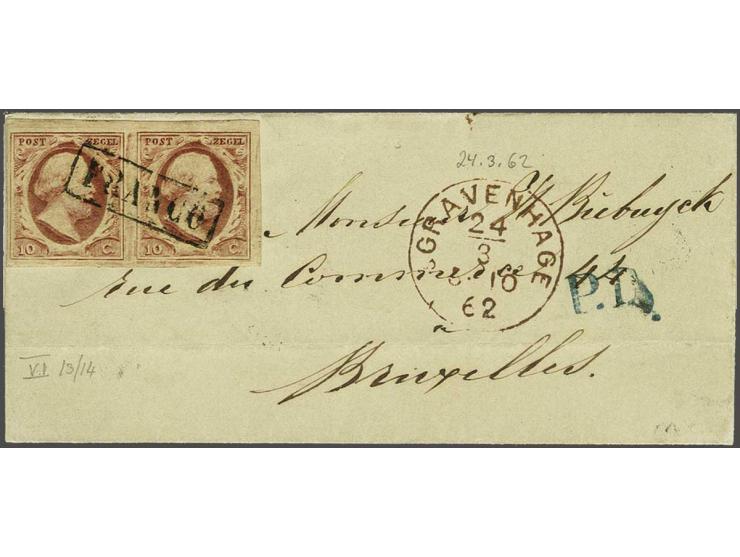 POST ZEGEL POST ZEGEL
FRANCO
10 C. 10 C.
24.3.62
'SGRAVENHAGE
24
3
8-10
62
Monsieur Biebuyck
rue du Commerce 44
P.D.
à
Bruxelles.
V.I 13/14